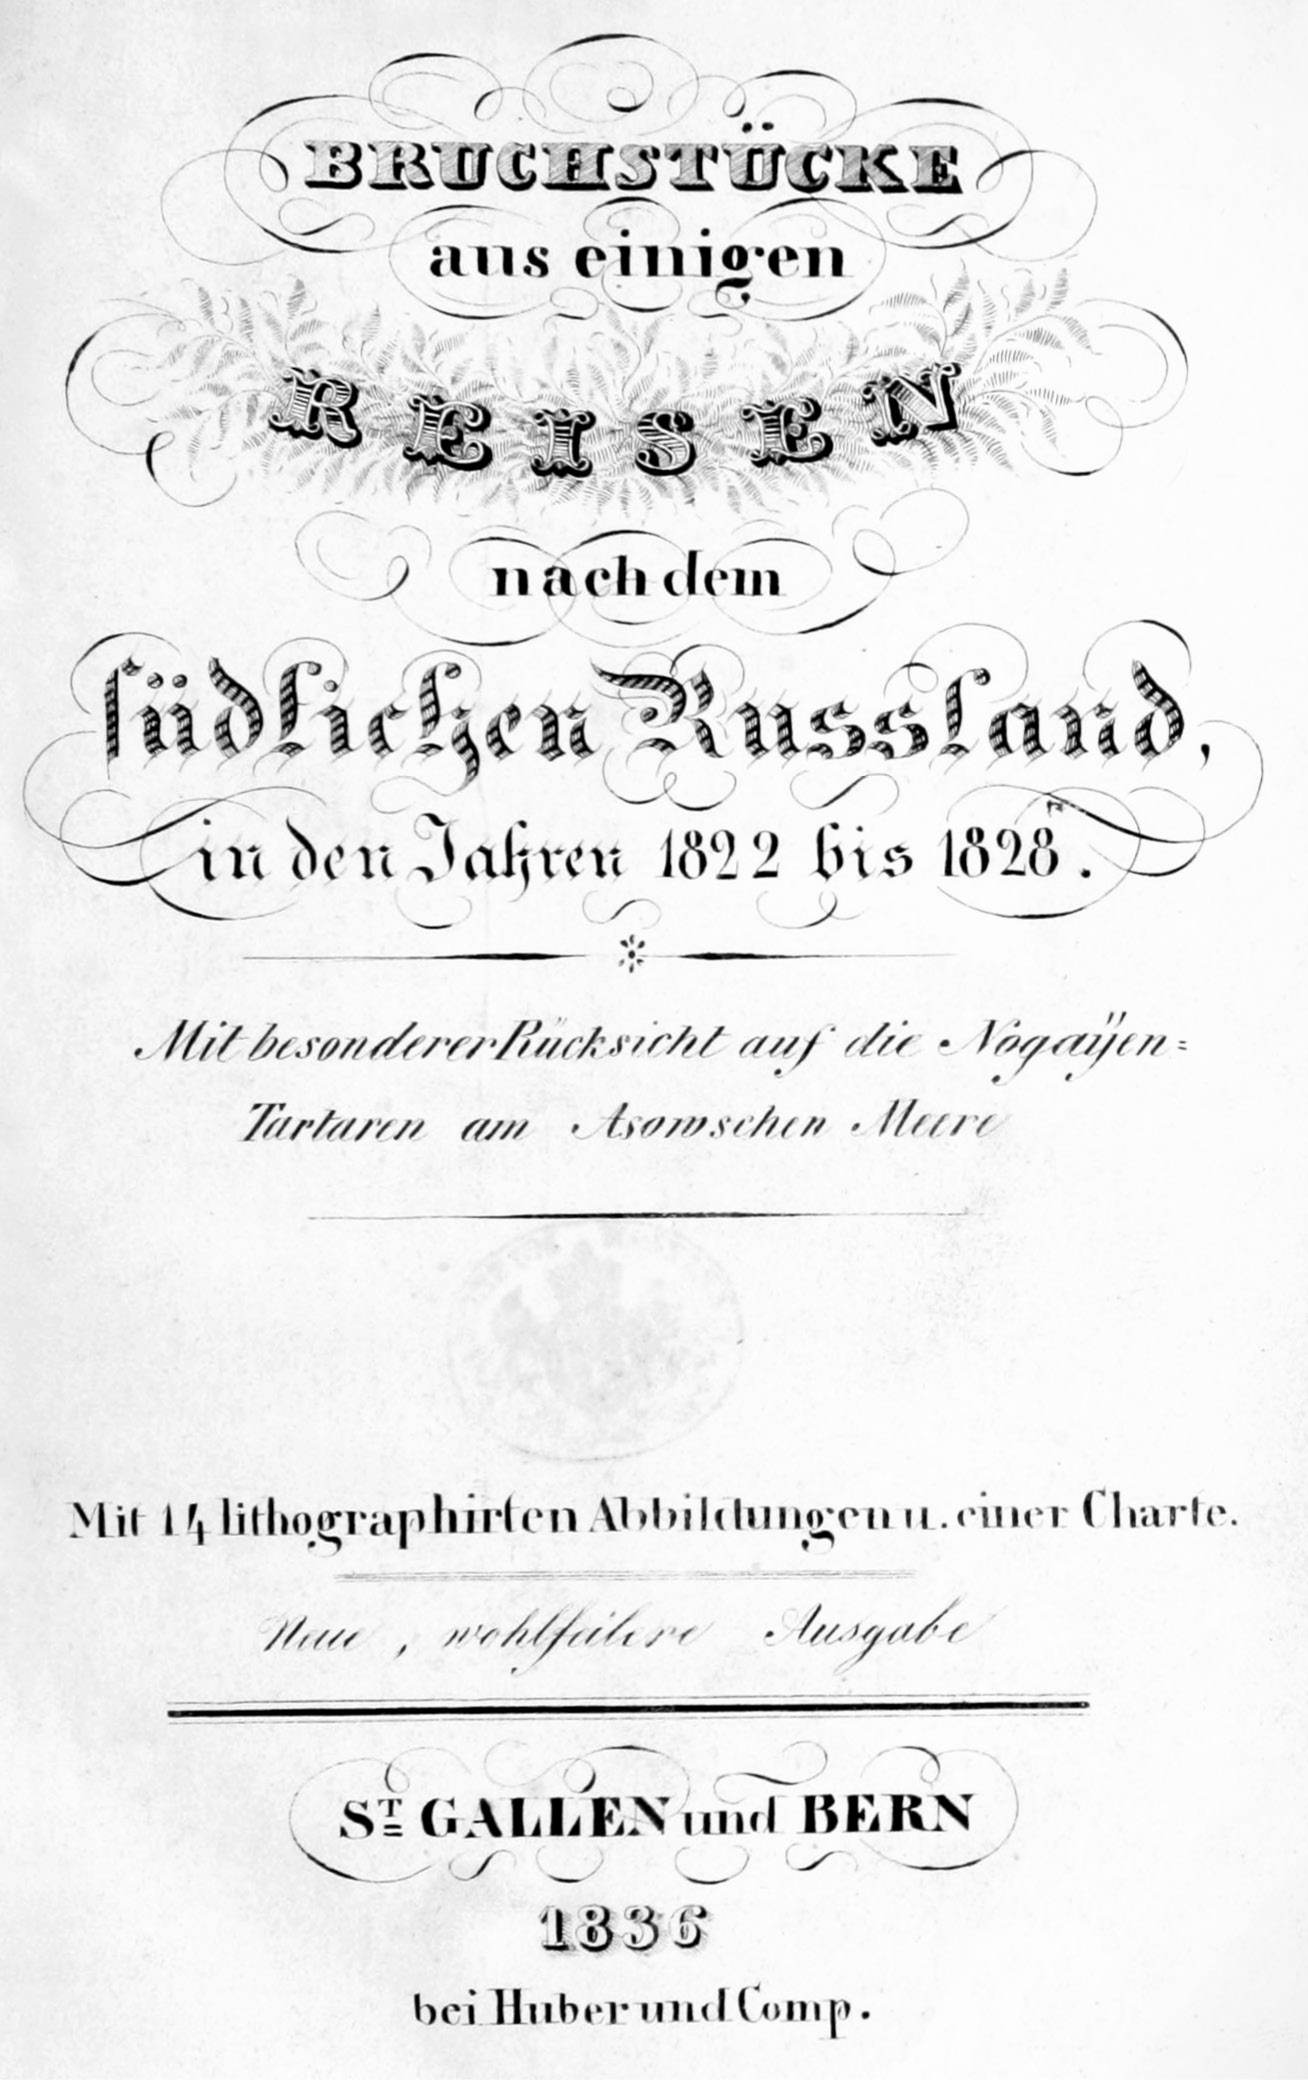 BRUCHSTÜCKE
aus einigen
REISEN
nach dem
südlichen Russland,
in den Jahren 1822 bis 1828.
Mit besonderer Rücksicht auf die Nogaÿen=
Tartaren am Asowschen Meere
Mit 14 lithographirten Abbildungen u. einer Charte.
Neue, wohlfeilere Ausgabe
ST GALLEN und BERN
1836
bei Huber und Comp.